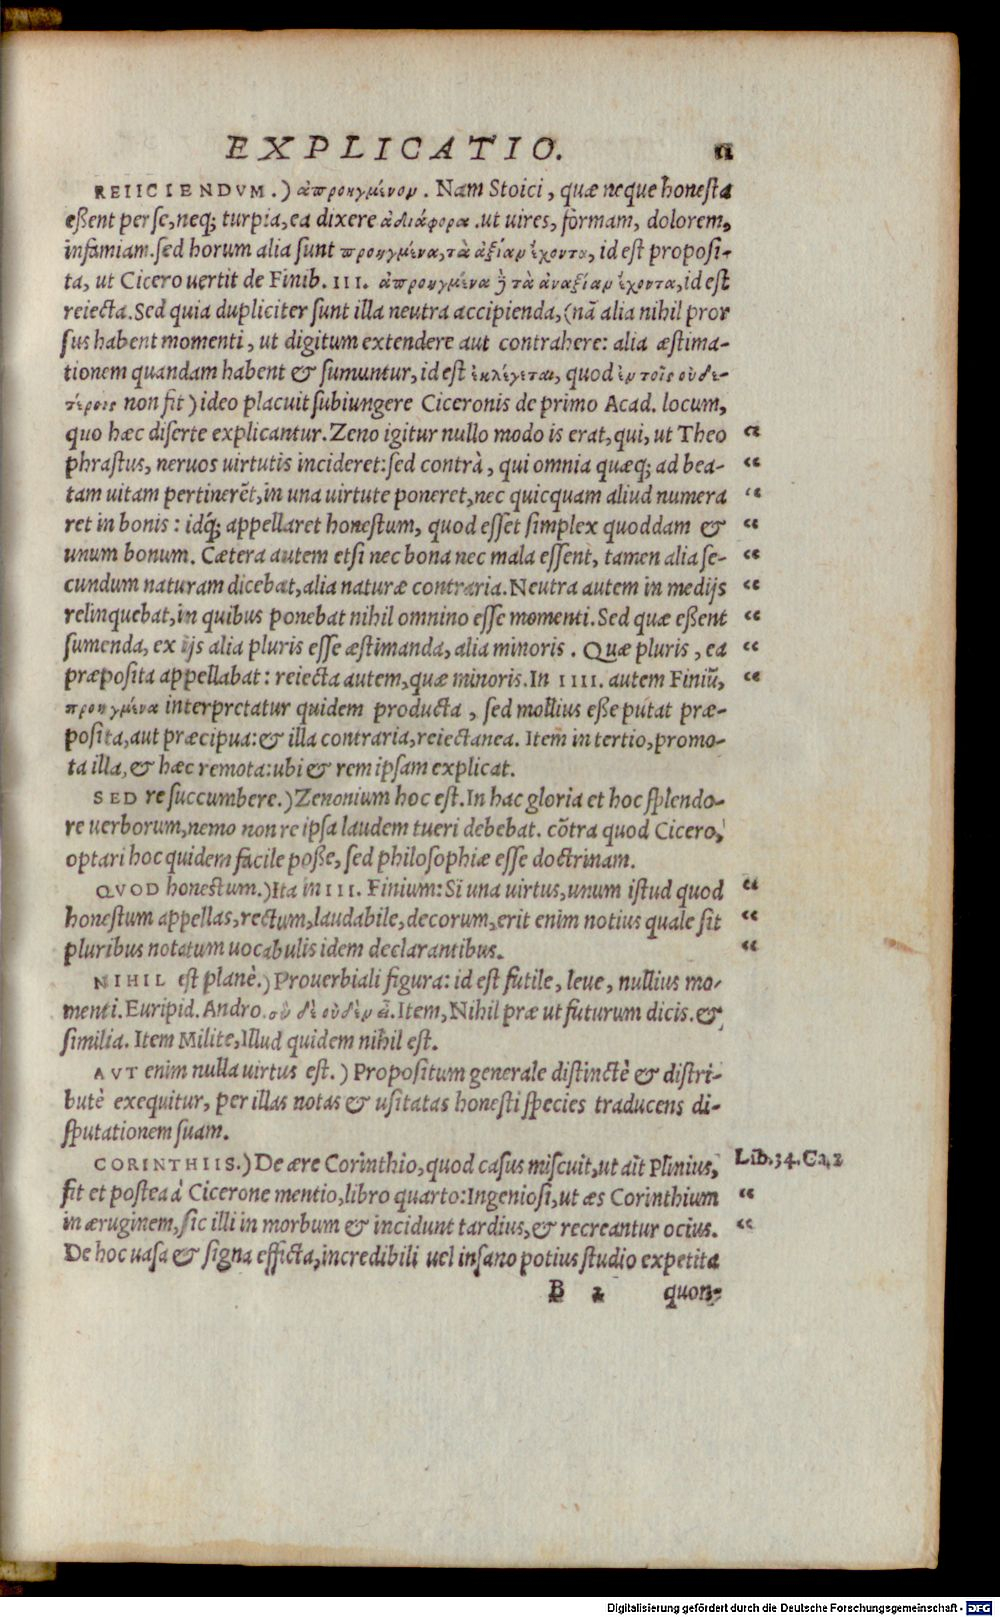 EXPLICATIO. 11
REIICIENDVM.) ἀπροηγμένον. Nam Stoici, quæ neque honesta
eßent per se, neq; turpia, ea dixere ἀδιάφορα. ut uires, formam, dolorem,
infamiam. sed horum alia sunt προηγμένα, τὰ ἀξίαν ἔχοντα, id est proposi-
ta, ut Cicero uertit de Finib. III. ἀπροηγμένα ἢ τὰ ἀναξίαν ἔχοντα, id est
reiecta. Sed quia dupliciter sunt illa neutra accipienda, (nã alia nihil pror
sus habent momenti, ut digitum extendere aut contrahere: alia æstima-
tionem quandam habent & sumuntur, id est ἐκλέγεται, quod ἐν τοῖς οὐδε-
τέροις non fit) ideo placuit subiungere Ciceronis de primo Acad. locum,
quo hæc diserte explicantur. Zeno igitur nullo modo is erat, qui, ut Theo “
phrastus, neruos uirtutis incideret: sed contrà, qui omnia quæq; ad bea- “
tam uitam pertinerẽt, in una uirtute poneret, nec quicquam aliud numera “
ret in bonis: idq́; appellaret honestum, quod esset simplex quoddam & “
unum bonum. Cætera autem etsi nec bona nec mala essent, tamen alia se- “
cundum naturam dicebat, alia naturæ contraria. Neutra autem in medijs “
relinquebat, in quibus ponebat nihil omnino esse momenti. Sed quæ eßent “
sumenda, ex ijs alia pluris esse æstimanda, alia minoris. Quæ pluris, ea “
præposita appellabat: reiecta autem, quæ minoris. In IIII. autem Finiũ, “
προηγμένα interpretatur quidem producta, sed mollius eße putat præ-
posita, aut præcipua: & illa contraria, reiectanea. Item in tertio, promo-
ta illa, & hæc remota: ubi & rem ipsam explicat.
SED re succumbere.) Zenonium hoc est. In hac gloria et hoc splendo-
re uerborum, nemo non re ipsa laudem tueri debebat. cõtra quod Cicero,
optari hoc quidem facile poße, sed philosophiæ esse doctrinam.
QVOD honestum.) Ita in III. Finium: Si una uirtus, unum istud quod “
honestum appellas, rectum, laudabile, decorum, erit enim notius quale sit “
pluribus notatum uocabulis idem declarantibus. “
NIHIL est planè.) Prouerbiali figura: id est futile, leue, nullius mo-
menti. Euripid. Andro. σὺ δὲ οὐδὲν Item, Nihil præ ut futurum dicis. &
similia. Item Milite, Illud quidem nihil est.
AVT enim nulla uirtus est.) Propositum generale distinctè & distri-
butè exequitur, per illas notas & usitatas honesti species traducens di-
sputationem suam.
CORINTHIIS.) De ære Corinthio, quod casus miscuit, ut ait Plinius, Lib. 34. Ca. 2
fit et postea à Cicerone mentio, libro quarto: Ingeniosi, ut æs Corinthium “
in æruginem, sic illi in morbum & incidunt tardius, & recreantur ocius. “
De hoc uasa & signa efficta, incredibili uel insano potius studio expetita
B 2 quon-
Digitalisierung gefördert durch die Deutsche Forschungsgemeinschaft - DFG